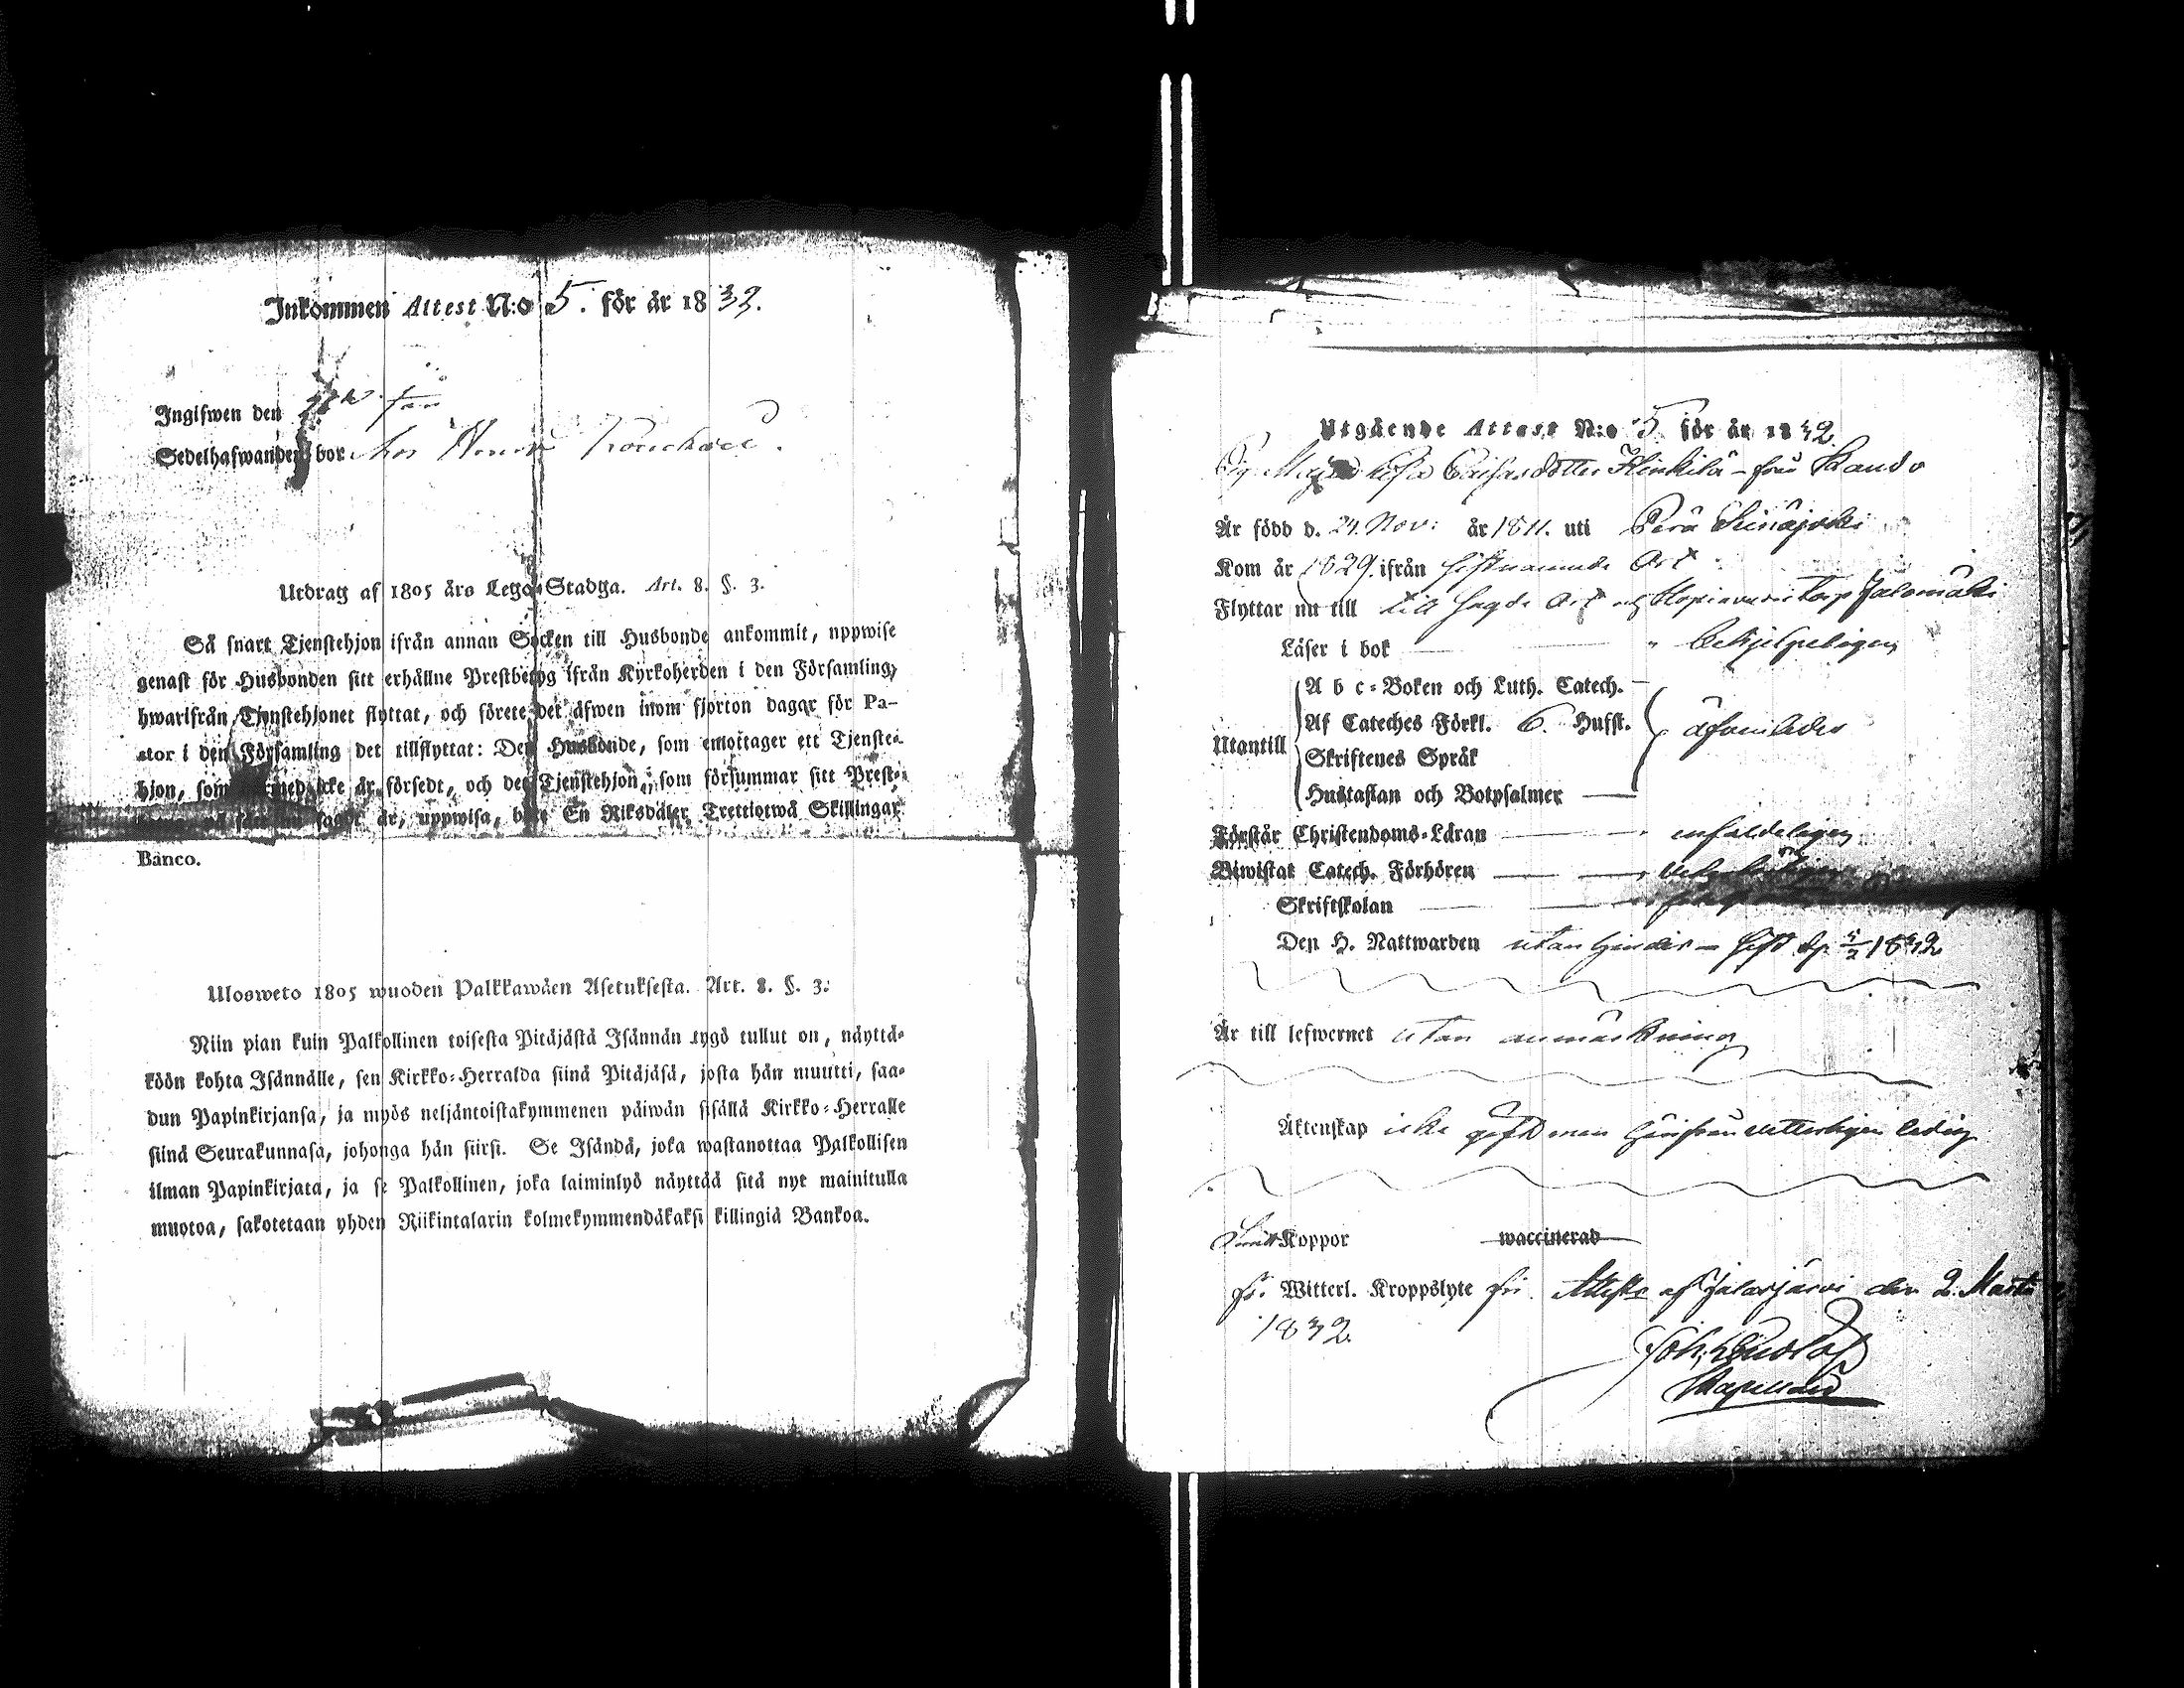 Inkommen Attest N:o 5. för år 1832.
Ingifwen den
Sedelhafwanden bor hos
Utdrag af 1805 års Lego-Stadga. Art. 8. §. 3.
Så snart Tjenstehjon ifrån annan Socken till Husbonde ankommit, uppwise
genast för Husbonden sitt erhållne Prestbetyg ifrån Kyrkoherden i den Församling,
hwarifrån Tjenstehjonet flyttat, och förete det äfwen inom fjorton dagar för Pa-
stor i den Församling det tillflyttat: Den Husbonde, som emottager ett Tjenste-
hjon, som icke är försedt, och det Tjenstehjon, som försummar sitt Prest-
sagdt är, uppwisa, böte En Riksdaler Trettiotwå Skillingar
Banco.
Ulosweto 1805 wuoden Palkkawäen Asetuksesta. Art. 8. §. 3:
Niin pian kuin Palkollinen toisesta Pitäjästä Isännän tygö tullut on, näyttä-
köön kohta Isännälle, sen Kirkko-Herralda siinä Pitäjäsä, josta hän muutti, saa-
dun Papinkirjansa, ja myös neljäntoistakymmenen päiwän sisällä Kirkko-Herralle
siinä Seurakunnasa, johonga hän siirsi. Se Isändä, joka wastanottaa Palkollisen
ilman Papinkirjata, ja se Palkollinen, joka laiminlyö näyttää sitä nyt mainitulla
muotoa, sakotetaan yhden Riikintalarin kolmekymmendäkaksi killingiä Bankoa.
Utgående Attest N:o 5 för år 1832
Pig. Maja Caisasdotter från
Är född d. 24. Nov: år 1811. uti Perä Seinäjoki
Kom år 1829. ifrån sistnämnde Ort
Flyttar nu till till sagde Ort och Torp Jalomäki
Läser i bok behjelpeligen
A b c-Boken och Luth. Catech.
Af Cateches Förkl. 6. Hufst.
Utantill äfwenledes
Skriftenes Språk
Hustaflan och Botpsalmer
Förstår Christendoms-Läran enfaldeligen
Biwistat Catech. Förhören
Skriftskolan
Den H. Nattwarden utan hinder - sist 1832
Är till lefwernet utan anmärkning
Äktenskap icke gift men ledig
Koppor waccinerad
Witterl. Kroppslyte fri. Attest. af Jalasjärvi den 2. Martii
1832
Kapellan